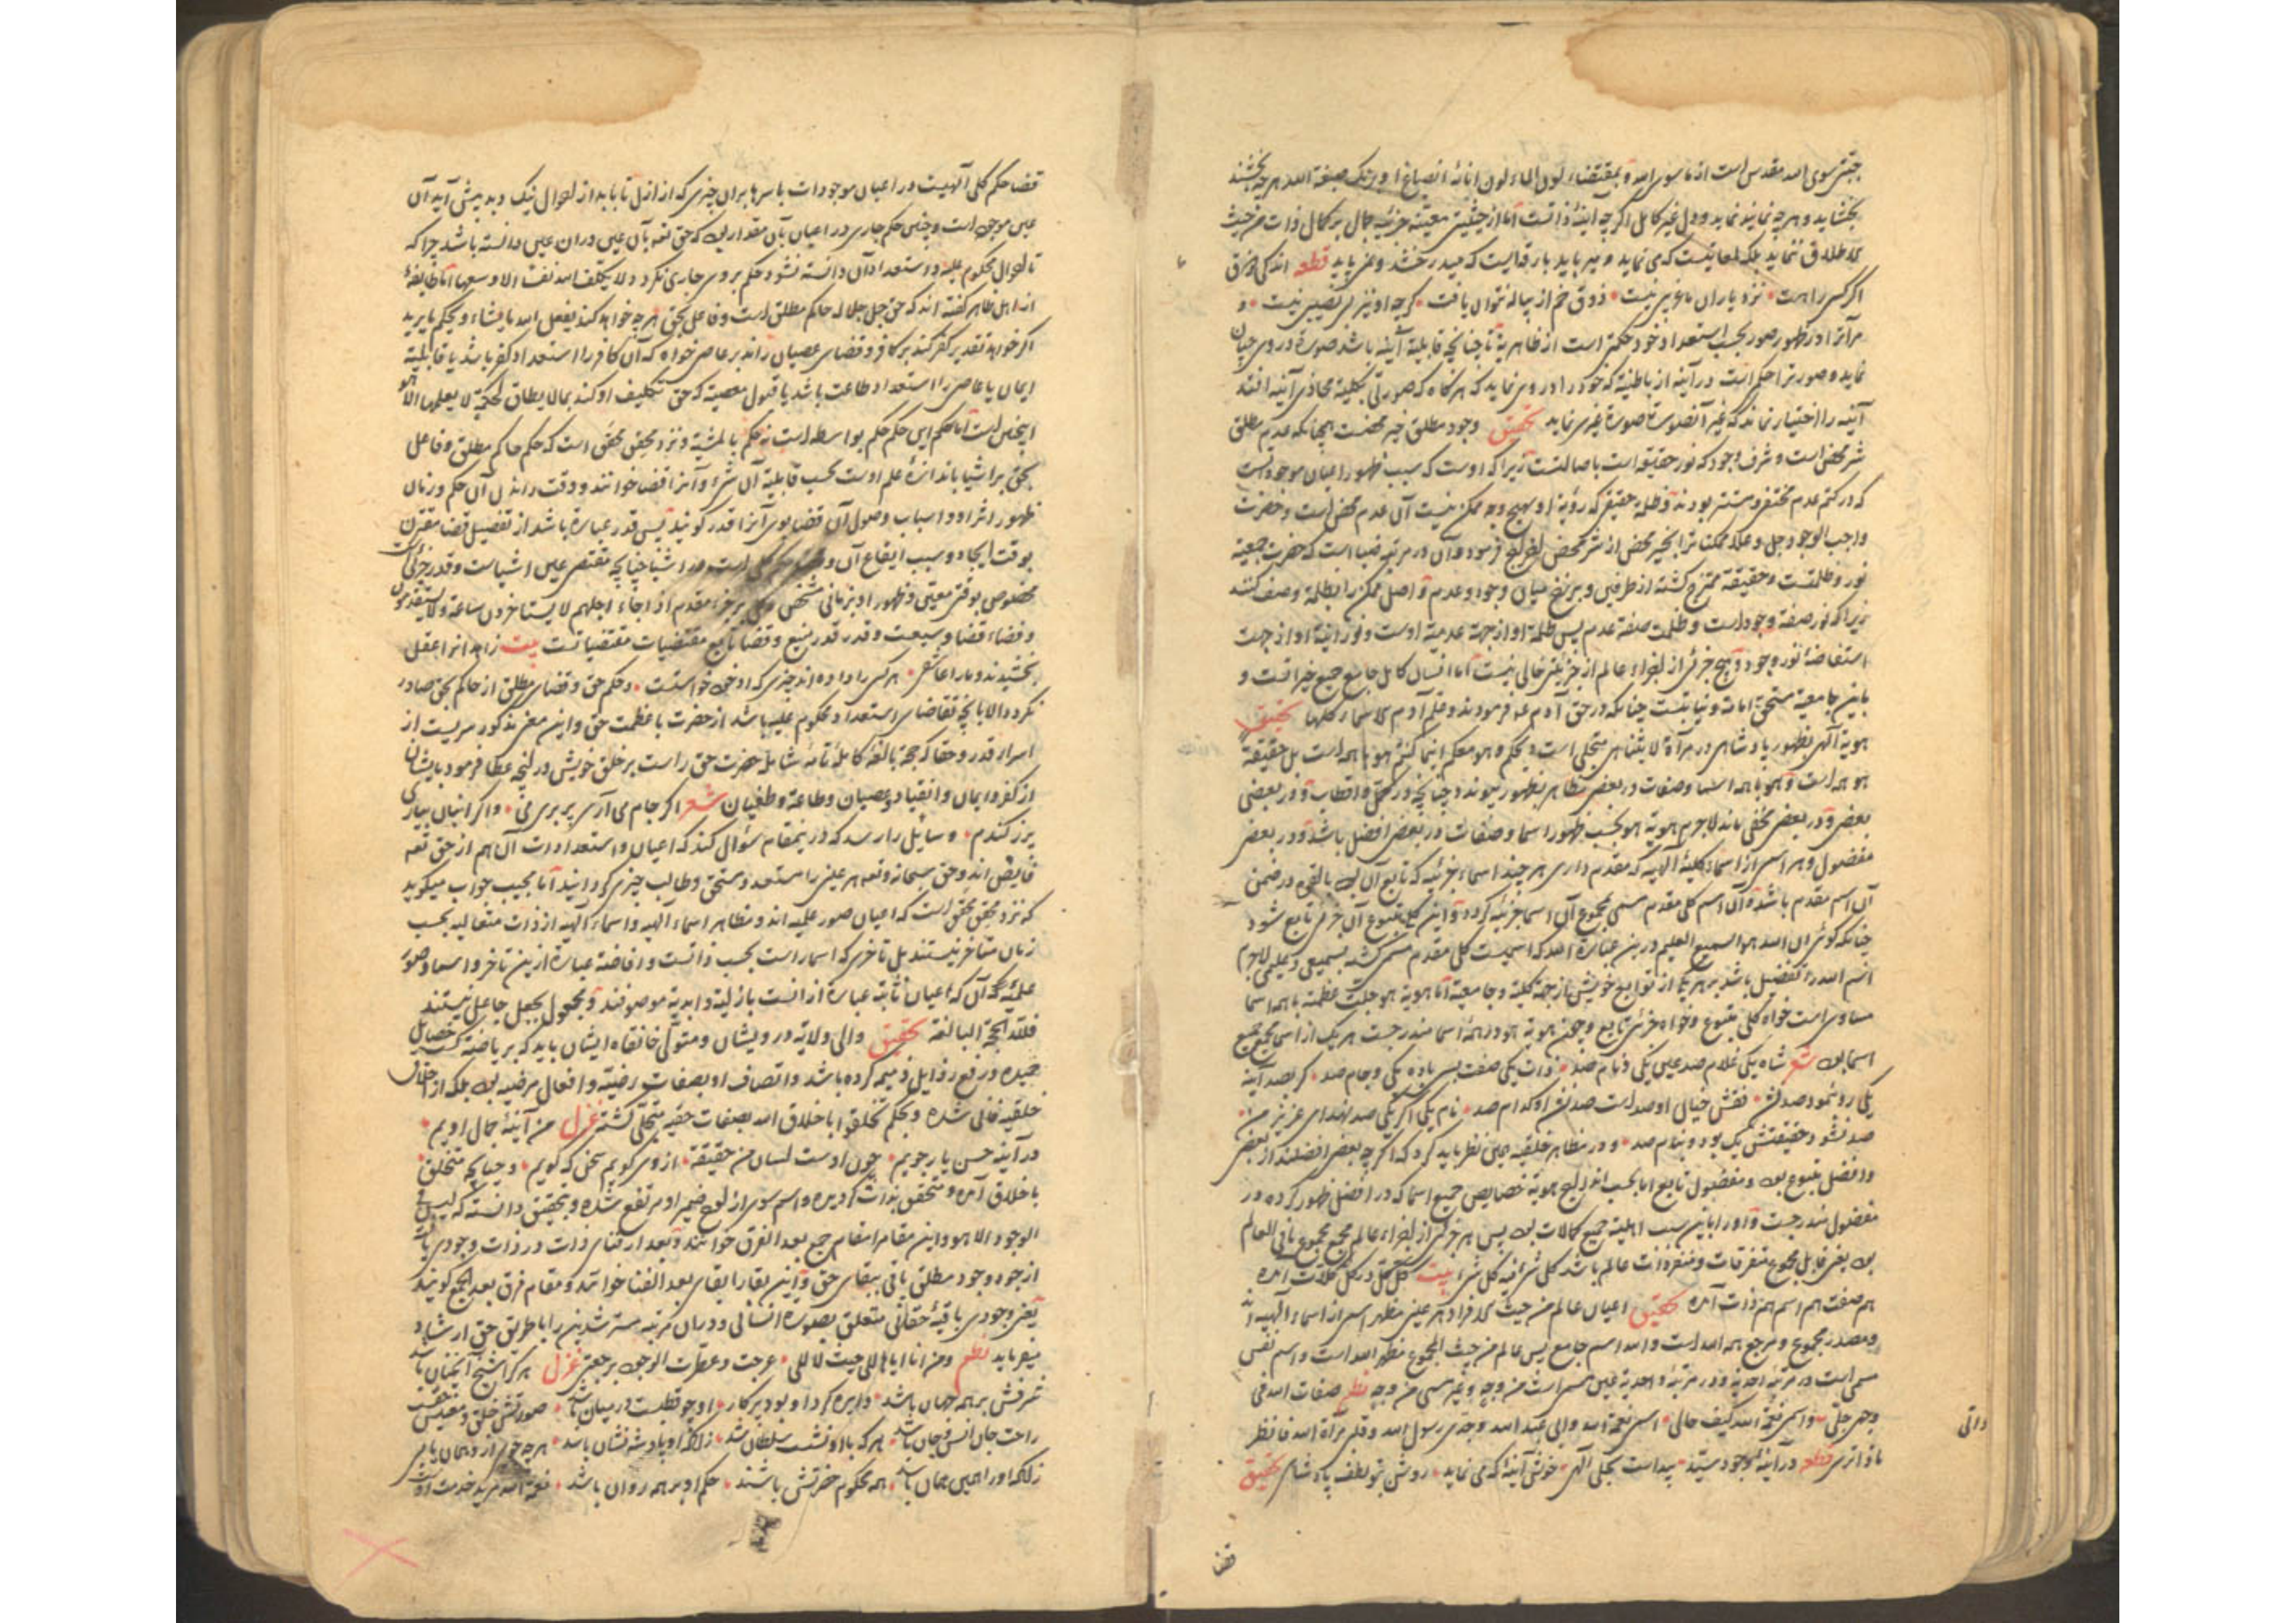 جنتش سوی الله مقدس است از ماسوی الله و بمقتضاء لون الماء لون انائه انصباغ او برنک صبغة الله هر چه بخشند
بخشاید و هر چه نمایند نماید و دل غیر کامل اگر چه آینۀ ذاتست اما از حیثیتی معینه جزئیه جمال بر کمال ذات من حیث
الاطلاق ننماید بلکه لمعاتیست که می نماید و میرباید بارقه ایست که میدرخشد و می رباید قطعه اندکی ذوق
اگر کسی را هست نزد یاران ما غریبی نیست ذوق خم از پیاله نتوان یافت گرچه او نیز بی نصیبی نیست و
مرآترا در ظهور صور بحسب استعداد خود حکمیست از ظاهریة تا چنانچه قابلیة آینه باشد صورة در وی چنان
نماید و صورترا حکم است در آینه از باطنیة که خود را در وی نماید که هر گاه که صورتی بکلیة محاذی آینه افتد
آینه را اختیار نماند که غیر آنصورة صورة غیری نماید تحقیق وجود مطلق خیر محضست همچنانکه عدم مطلق
شر محض است و شرف وجود که نور حقیقی است باصالتست زیرا که اوست که سبب ظهور اعیان موجوداتست
که در کتم عدم مختفی و مستتر بودند و ظلمة حقیقی که رؤیة او بهیچ وجه ممکن نیست آن عدم محض است و حضرت
واجب الوجود جل و علا ممکناترا بخیر محض از شر محض اخراج فرمود و آن در مرتبه ضیا است که حضرت جمعیة
نور و ظلمتست و حقیقة ممتزج گشته از طرفین و برزخ میان وجود و عدم و اصل ممکن را بظلمة وصف کنند
زیرا که نور صفة وجود است و ظلمت صفة عدم پس ظلمة او از جهة عدمیة اوست و نورانیة او از جهت
استفاضۀ نور وجود و هیچ جزئی از اجزاء عالم از خیریتی خالی نیست اما انسان کامل جامع جمیع خیراتست و
باین جامعیة مستحق امامة و نیابتست چنانکه در حق آدم ع فرمودند و علم آدم الاسماء کلها تحقیق
هویة الهی بظهور پادشاهی در مرآة لایتناهی متجلی است و بحکم و هو معکم اینما کنتم هو با همه است بل حقیقة
هو همه است و هو با همه اسما و صفات در بعضی مظاهر بظهور پیوندد چنانچه در کمل و اقطاب و در بعضی
بعضی و در بعضی مخفی ماند لاجرم هویة هو بحسب ظهور اسما و صفات در بعضی افضل باشد و در بعضی
مفضول و هر اسمی از اسماء کلیۀ الهیه که مقدم داری هر چند اسماء جزئیه که تابع آن بود بالقوه در ضمن
آن اسم مقدم باشد و آن اسم کلی مقدم مسمی بمجموع آن اسما جزئیه گردد و این کلی متبوع آن جزئی تابع شود
چنانکه گوئی ان الله هو السمیع العلیم درین عبارة الله که اسمیست کلی مقدم مسمی گشته بسمیعی و علیمی لاجرم
اسم الله را تفضیل باشد بر هر یکی از توابع خویش از جهة کلیة و جامعیة اما هویة هو جلت عظمته با همه اسما
مساوی است خواه کلی متبوع و خواه جزئی تابع و چون هویة هو در همۀ اسما مندرجست هر یک از اسمی مجمع جمیع
اسما بود شعر شاه یکی غلام صد عین یکی و نام صد ذات یکی صفت بسی باده یکی و جام صد گر بصد آینه
یکی رو نمود صد نشد نقش خیال او صد است صد نشد او کدام صد نام یکی اگر یکی صد نهد ای عزیز من
صد نشود حقیقتش یک بود و بنام صد و در مظاهر خلقیه همین نظر باید کرد که اگر چه بعضی افضلند از بعضی
و افضل متبوع بود و مفضول تابع اما بحسب اندراج هویة خصایص جمیع اسما که در افضل ظهور کرده در
مفضول مندرجست و او را باین سبب اهلیة جمیع کمالات بود پس هر جزئی از اجزاء عالم مجمع مجموع ما فی العالم
بود یعنی قابل مجموع متفرقات و منفردات عالم باشد کل شئ فیه کل شئ بیت کل کل در کل کلات آمده
هم صفت هم اسم هم ذات آمده تحقیق اعیان عالم من حیث الافراد هر عینی مظهر اسمی از اسماء الهیه اند
و مصدر مجموع و مرجع همه الله است و الله اسم جامع پس عالم من حیث المجموع مظهر الله است و اسم نفس
مسمی است در مرتبۀ احدیة و در مرتبۀ واحدیة عین مسمی است من وجه و غیر مسمی من وجه نظم صفات الله فی
وجهی جلی و اسمی نعمة الله کیف حالی اسمی نعمة الله و ابی عبد الله وجدی رسول الله و قلبی مرآة الله فانظر
ماذا تری قطعه در آینۀ وجود سید پیداست تجلی الهی خوش آینۀ که می نماید روشن بتو لطف پادشاهی تحقیق
ذاتی
قضا
قضا حکم کلی الهیست در اعیان موجودات باسرها بران چیزی که از ازل تا بابد از احوال نیک و بد پیش آید آن
عین موجود است و چنین حکم جاری در اعیان بآن مقدار بود که حق تعه بآن عین دران عین دانسته باشد چرا که
تا احوال محکوم علیه و استعداد آن دانسته نشود حکم بر وی جاری نگردد لا یکلف الله نفسا الا وسعها اما طایفۀ
از اهل ظاهر گفته اند که حق جل جلاله حاکم مطلق است و فاعل بحق هر چه خواهد کند یفعل الله ما یشاء و یحکم ما یرید
اگر خواهد تقدیر کفر کند بر کافر و قضای عصیان راند بر عاصی خواه که آن کافر را استعداد کفر باشد یا قابلیة
ایمان یا عاصی را استعداد طاعت باشد یا قبول معصیة که حق تکلیف او کند بمالا یطاق لحکمة لا یعلمها الا هو
اینچنین است اما حکم این حکم حکم بواسطه است نه حکم بالمشیة و نزد محقق محقق است که حکم حاکم مطلق و فاعل
بحق بر اشیا باندازۀ علم اوست بحسب قابلیة آن شئ و آنرا قضا خوانند و وقت راندن آن حکم و زمان
ظهور اثر او و اسباب وصول آن قضا بوی آنرا قدر گویند پس قدر عبارة باشد از تفصیل قضا مقترن
بوقت ایجاد و سبب ایقاع آن و قضا حکم کلی است در اشیا چنانچه مقتضی عین اشیاست و قدر جزئیات
مخصوص بوقتی معین و ظهور او بزمانی مشخص و کلی بر جزء مقدم اذا جاء اجلهم لا یستاخرون ساعة ولا یستقدمون
و فضاء قضا وسیعست و قدر قدر منیع و قضا تابع مقتضیات مقتضیاتست بیت زاهدانرا عقل
بخشیدند و ما را عاشقی هر کسی را داده اند چیزی که او خود خواستست و حکم حق و قضای مطلق از حاکم بحق صادر
نگردد الا بآنچه تقاضای استعداد محکوم علیه باشد از حضرت با عظمت حق و این معنی مذکور سریست از
اسرار قدر و حقا که حجة بالغۀ کاملۀ تامۀ شامله حضرت حق راست بر خلق خویش در آنچه عطا فرمود بایشان
از کفر و ایمان و انقیاد و عصیان و طاعة و طغیان شعر اگر جام می آری پر بری می و اگر انبان بیاری
پرز گندم و سایل را رسد که درینمقام سؤال کند که اعیان و استعدادات آن هم از حق تعه
فایض اند و حق سبحانه و تعه هر عینی را مستعد و مستحق و طالب چیزی گردانید اما مجیب جواب میگوید
که نزد محقق محقق است که اعیان صور علمیه اند و مظاهر اسماء الهیه و اسماء الهیه از ذات متعالیه بحسب
زمان متأخر نیستند بل تاخری که اسما راست بحسب ذاتست و افاضه عبارة ازین تاخر و اسما و صور
علمیه که آن که اعیان ثابته عبارة از انست بازلیة و ابدیة موصوفند و مجعول بجعل جاعل نیستند
فلله الحجة البالغة تحقیق والی ولایة درویشان و متولی خانقاه ایشان باید که بریاضة کسب خصایل
حمیده و رفع رذایل ذمیمه کرده باشد و اتصاف او بصفات رضیة و افعال مرضیه بود بلکه از اخلاق
خلقیه فانی شده و بحکم تخلقوا باخلاق الله بصفات حقیه متجلی گشته غزل من آینۀ جمال اویم
در آینه حسن یار جویم چون اوست لسان من حقیقة از وی گویم سخن که گویم و چنانچه متخلق
باخلاق آمده و متحقق بذات گردیده و اسم سوی از لوح ضمیر او مرتفع شده و بتحقیق دانسته که لیس فی
الوجود الا هو و این مقام را مقام جمع بعد الفرق خوانند و بعد از فنای ذات در ذات وجودی یابد
از جود وجود مطلق باقی ببقای حق و این بقا را بقای بعد الفنا خوانند و مقام فرق بعد الجمع گویند
یعنی وجودی باقیۀ حقانی متعلق بصورة انسانی و دران مرتبه مسترشدین را با طریق حق ارشاد
میفرماید نظم ومن انا ایاها الی حیث لا الی عرجت و عطرت الوجود برجعتی غزل هر کرا شیخ آنچنان باشد
شرفش بر همه جهان باشد دایره گرد او بود پرکار او چو قطبست در میان باشد صورتش خلق و معنیش حقست
راحت جان انس و جان باشد هر که با او نشست سلطان شد زانکه او پادشه نشان باشد هر چه جوئی از و همان یابی
زانکه او را همین همان باشد همه محکوم حضرتش باشند حکم او بر همه روان باشد نعمة الله مرید خدمت اوست